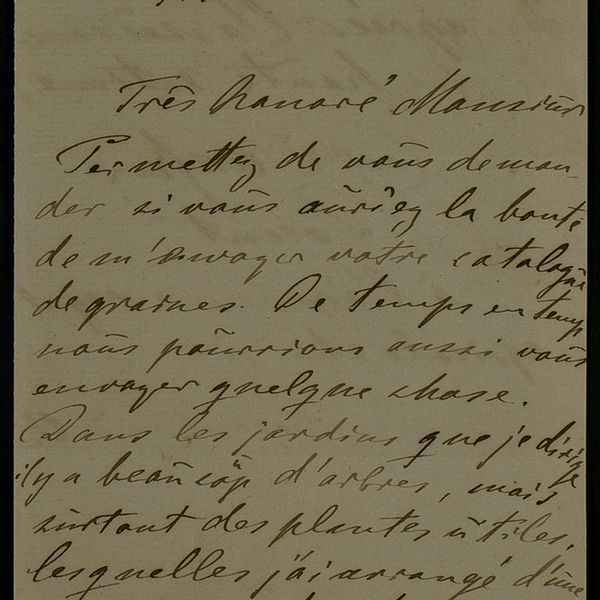 Très honoré Monsieur
Permettez de vous deman-
der si vous auriez la bonté
de m'envoyer votre catalogue
de graines. De temps en temps
nous pourrions aussi vous
envoyer quelque chose.
Dans les jardins que je dirige
il y a beaucoup d'arbres, mais
surtout des plantes utiles,
lesquelles j'ai arrangé d'une